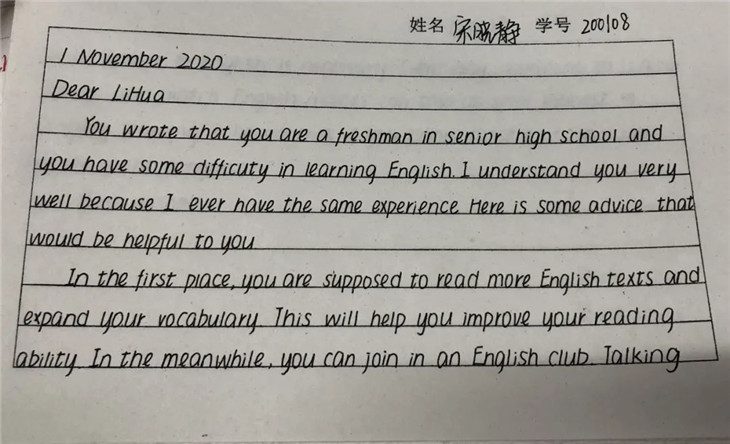 姓名 宋晓静 学号 200108
1 November 2020
Dear LiHua
You wrote that you are a freshman in senior high school and
you have some difficuty in learning English. I understand you very
well because I ever have the same experience. Here is some advice that
would be helpful to you
In the first place, you are supposed to read more English texts and
expand your vocabulary. This will help you improve your reading
ability. In the meanwhile, you can join in an English club. Talking